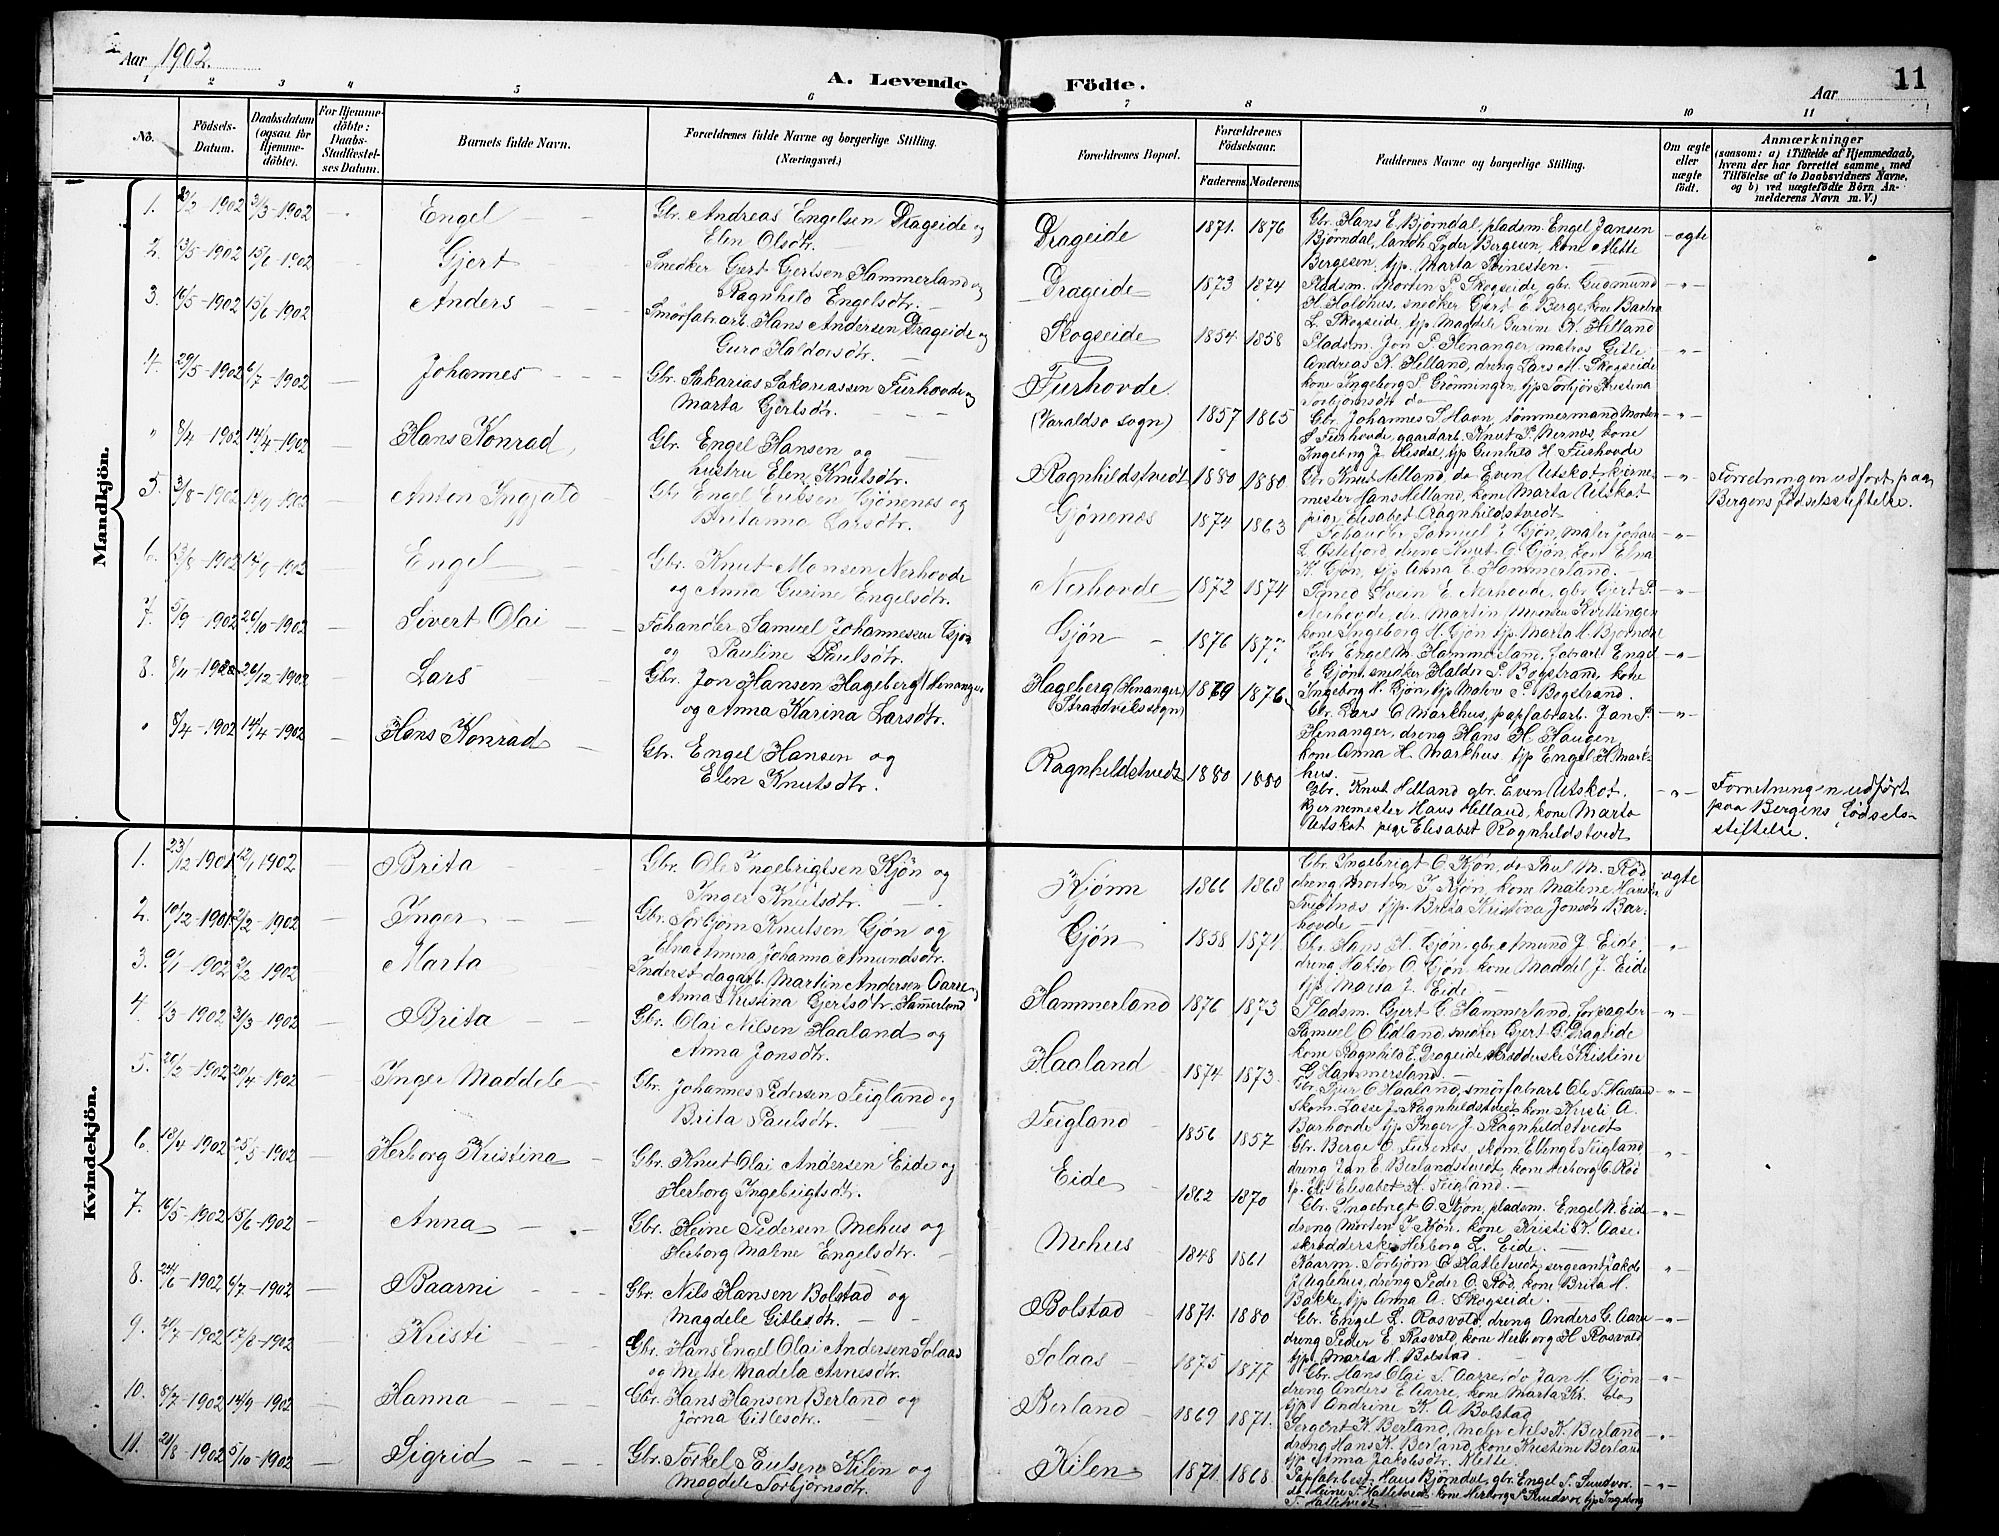 Aar 1902.
A. Levende Födte.
Aar
11
1 2 3 4 5 6 7 8 9 10 11
No.
Födsels-
Datum.
Daabsdatum
(ogsaa for
Hjemme-
döbte).
For Hjemme-
döbte:
Daabs-
Stadfæstel-
ses Datum.
Barnets fulde Navn.
Forældrenes fulde Navne og borgerlige Stilling.
(Næringsvei.)
Forældrenes Bopæl.
Forældrenes
Födselsaar.
Faderens. Moderens.
Faddernes Navne og borgerlige Stilling.
Om ægte
eller
uægte
födt.
Anmærkninger
(saasom: a) i Tilfælde af Hjemmedaab,
hvem der har forrettet samme, med
Tilföielse af to Daabsvidners Navne,
og b) ved uægtefödte Börn An-
melderens Navn m. V.)
Mandkjön.
1. 1902 31/3-1902 Engel
Gbr. Andreas Engelsen Drageide og
Elen Olsdtr.
Drageide 1871. 1876
Gbr. Hans E. Bjørndal, pladsm. Engel Jansen
Bjørndal, Lyder Bergesen, kone Mette
Bergesen, tjp. Marta
ægte
2. 13/5-1902 15/6-1902 Gjert
Snedker Gjert Gjertsen Hammerland og
Ragnhild Engelsdtr.
Drageide 1873 1874
Pladsm. Morten P. Skogseide, gbr. Gudmund
H. Holdhus, snedker Gjert O. Berge, kone Barbra
L. Skogseide, tjp. Magdele Gurine K. Helland
3. 16/5-1902 15/6-1902 Anders
Smörfabrarb. Hans Andersen Drageide og
Guro Haldorsdtr.
Skogseide 1854. 1858
Pladsm. Jon P. Henanger, matros Gitle
Andreas K. Helland, dreng Lars M. Skogseide
kone Ingeborg P. Grönningen, tjp Torbjør Kristina
Torbjørnsdtr do
4. 29/5-1902 6/7-1902 Johannes
Gbr. Sakarias Sakariassen Furhovde og
Marta Gjertsdtr.
Furhovde
(Varaldsø sogn) 1857 1865
Gbr. Johannes S. Havn, tømmermand Morten
S. Furhovde, gaardarb. Knut P. Nernes, kone
Ingeborg J. Hisdal, tjp Gunhild H. Furhovde
" 8/4-1902 14/4-1902 Hans Konrad
Gbr. Engel Hansen og
hustru Elen Knutsdtr.
Ragnhildstvedt 1880 1880
Gbr Knut Helland, do Even Utskot, kjerne-
mester Hans Helland, kone Marta Utskot
pige Elisabet Ragnhildstvedt
Forretningen udført paa
Bergens fødselsstiftelse.
5. 3/8-1902 14/9-1902 Anton Ingjald
Gbr Engel Eriksen Gjönenes og
Britanna Larsdtr.
Gjönenes 1874 1863
Samuel J Gjön, maler Johan
L. Østefjord, dreng Knut O. Gjön, kone Elna
K. Gjön, tjp Anna E. Hammerland.
6. 13/8-1902 14/9-1902 Engel
Gbr. Knut Monsen Nerhovde
og Anna Gurine Engelsdtr.
Nerhovde 1872 1874
Smed Svein E. Nerhovde, gbr Gjert P.
Nerhovde, dr. Martin Monsen Kvitingen
kone Ingeborg H. Gjön tjp. Marta H. Bjørndal
7. 5/9-1902 26/10-1902 Sivert Olai
Samuel Johannessen Gjön
og Pauline Paulsdtr.
Gjön 1876 1877
Gbr. Engel M. Hammerland, fabrarb Engel
E Gjön, snedker Haldor P. Bogstrand, kone
Ingeborg H. Gjön, tjp Malene P. Bogstrand.
8. 8/11-1902 26/12-1902 Lars
Gbr. Jon Hansen Hageberg (Henanger
og Anna Karina Larsdtr.
Hageberg (Henanger)
Strandvikssogn) 1879 1876
Gbr. Lars O Markhus, papfabrarb. Jan P.
Henanger, dreng Hans H. Haugen,
kone Anna H. Markhus tjp Engel H. Mark-
hus.
" 8/4-1902 14/4-1902 Hans Konrad
Gbr. Engel Hansen og
Elen Knutsdtr.
Ragnhildstvedt 1880 1880
Gbr. Knut Helland gbr. Even Utskot.
kjernemester Hans Helland, kone Marta
Utskot pige Elisabet Ragnhildstvedt
Forretningen udfört
paa Bergens Födsels-
stiftelse.
Kvindekjön.
1. 23/12-1901 12/1 1902 Brita
Gbr. Ole Ingebrigtsen Kjön og
Inger Knutsdtr.
Kjönn 1866 1868
Gbr. Ingebrigt O. Kjön, do Paul M. Röd
dreng Morten I. Kjön, kone Malene Hansdtr
tjp. Brita Kristina Jonsdtr Bar-
hovde
ægte
2. 10/12-1901 2/2-1902 Inger
Gbr. Torbjørn Knutsen Gjön og
Elna Anna Johanna Amundsdtr.
Gjön 1858 1874
Gbr. Hans H. Gjön, gbr. Amund J. Eide,
dreng Haktor O. Gjön kone Maddel J. Eide
tjp. Marta J. Eide.
3. 9/1-1902 2/2-1902 Marta
Inderst dagarb. Martin Andersen Aarre og
Anna Kristina Gjertsdtr. Hammerland
Hammerland 1876 1873
Pladsm. Gjert G. Hammerland, forpagter
Samuel O. Lidland, snedker Gjert G. Drageide
kone Ragnhild E. Drageide, Skrædderske Kristine
G. Hammersland.
4. 1/3-1902 31/3-1902 Brita
Gbr. Olai Nilsen Haaland og
Anna Jonsdtr.
Haaland 1874 1873.
Gbr. Sjur O Haaland, smörfabrarb Ole S. Haaland
skom. Lasse J. Ragnhildstvedt kone Kristi A.
Barhovde tjp Inger J. Ragnhildstvedt
5. 20/2-1902 20/4-1902 Inger Maddele
Gbr. Johannes Pedersen Teigland og
Brita Paulsdtr.
Teigland 1856 1857
Gbr. Berge O. Furenes, skom. Elling E Teigland,
dreng Jan E. Berlandstvedt, kone Herborg O. Röd
tjp. Elisabet H. Teigland.
6. 18/4-1902 25/5-1902 Herborg Kristina
Gbr. Knut Olai Andersen Eide og
Herborg Ingebrigtsdtr.
Eide 1862 1870
Gbr. Ingebrigt O. Kjön, pladsm. Engel N. Eide
dreng Morten I. Kjön, kone Kristi K. Aase
skrædderske Herborg L. Eide.
7. 16/5-1902 15/6-1902 Anna
Gbr. Heine Pedersen Mehus og
Herborg Malene Engelsdtr.
Mehus 1848 1861
Kaarm. Torbjørn O. Hatletvedt, sergeant Jakob
J. Uglehus, dreng Peder O. Röd, kone Brita H.
Bakke, tjp Anna A. Skogseide.
8. 24/6-1902 6/7-1902 Baarni
Gbr. Nils Hansen Bolstad og
Magdele Gitlesdtr.
Bolstad 1871. 1880
Gbr. Engel L. Rosvold, dreng Anders G. Aarre
dreng Peder E. Rosvold, kone Herborg H. Rosvold
tjp. Marta H. Bolstad.
9. 20/7-1902 17/8-1902 Kristi
Gbr. Hans Engel Olai Andersen Solaas
og Mette Madela Arnesdtr.
Solaas 1875 1877
Gbr. Hans Olai S. Aarre, do Jan H. Gjön
dreng Anders E Aarre, kone Marta Kr. do,
tjp Andrine K. A Bolstad
10. 8/7-1902 14/9-1902 Hanna
Gbr. Hans Hansen Berland og
Jörna Gitlesdtr.
Berland 1869 1871.
Sergent K. Berland, maler Nils K. Berland
dreng Hans K. Berland, kone Kristine Berland
tjp Anna Jakobsdtr. Mette.
11. 20/8-1902 5/10-1902 Sigrid
Gbr. Torkel Paulsen Kilen og
Magdele Torbjørnsdtr.
Kilen 1871. 1868
Papfabr.best. Hans Bjørndal, gbr. Engel S. Sundvor.
do Heine T. Hatletvedt, kone Herborg S. Sundvor tjp Ingeborg
T. Hatletvedt